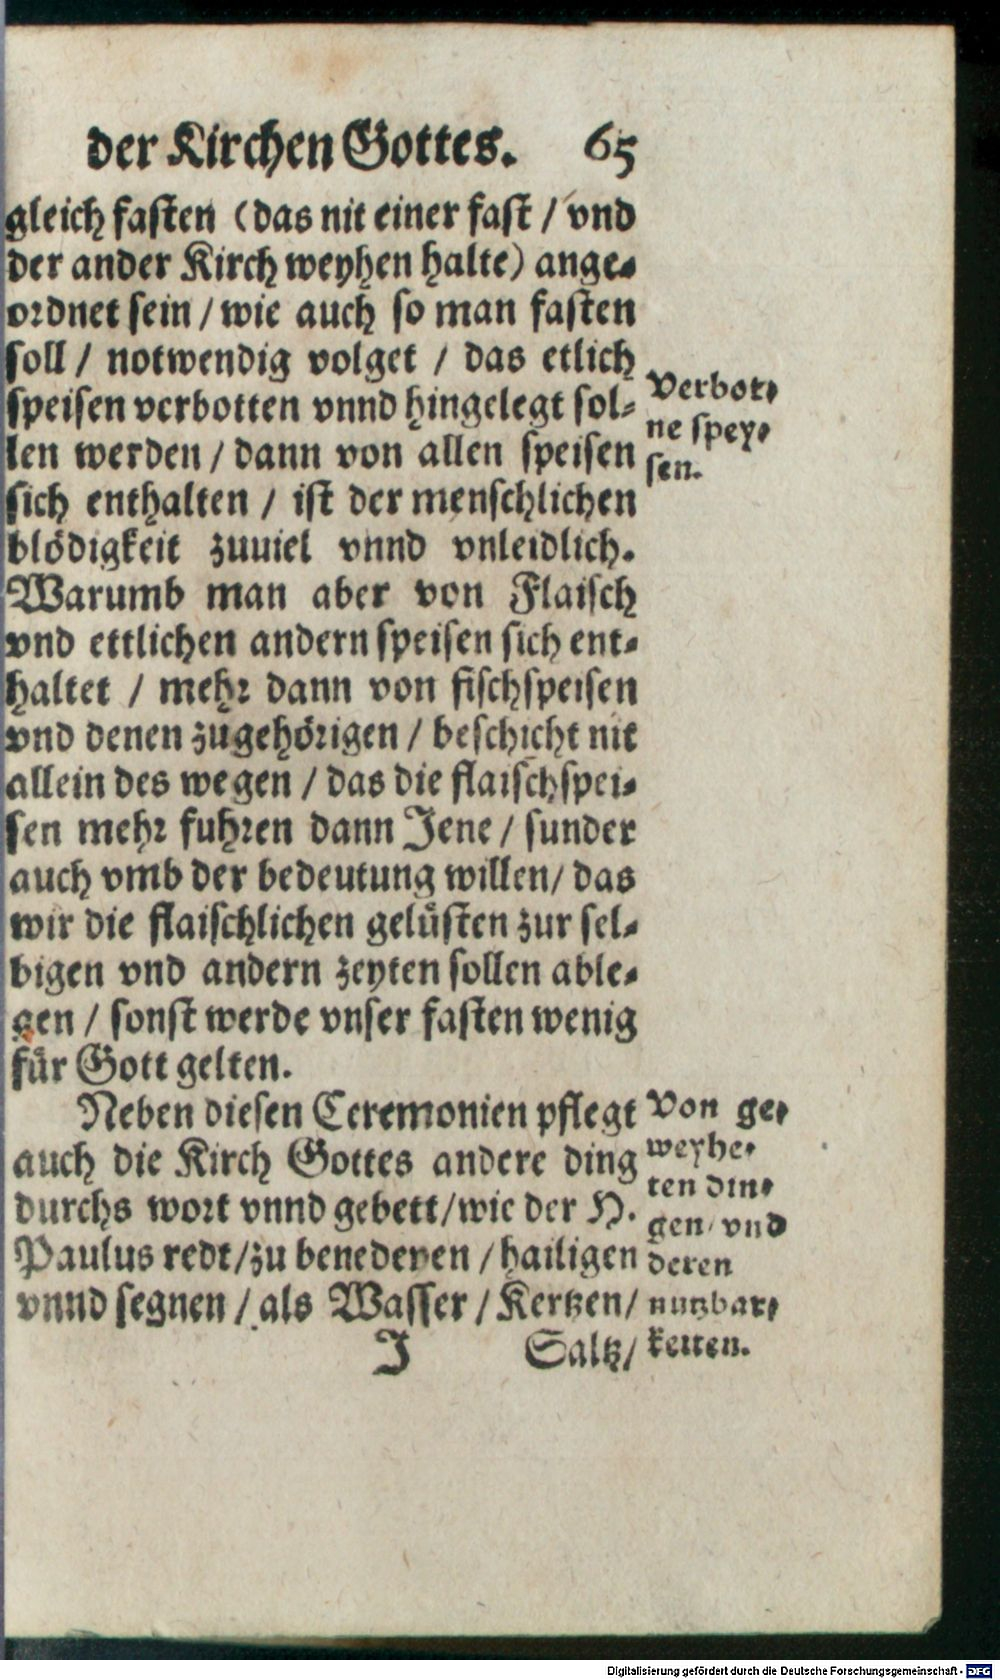 der Kirchen Gottes. 65
gleich fasten (das nit einer fast / vnd
der ander Kirch weyhen halte) ange-
ordnet sein / wie auch so man fasten
soll / notwendig volget / das etlich
speisen verbotten vnnd hingelegt sol-
len werden / dann von allen speisen
sich enthalten / ist der menschlichen
blödigkeit zuuiel vnnd vnleidlich.
Warumb man aber von Flaisch
vnd ettlichen andern speisen sich ent-
haltet / mehr dann von fischspeisen
vnd denen zugehörigen / beschicht nit
allein des wegen / das die flaischspei-
sen mehr fuhren dann Jene / sunder
auch vmb der bedeutung willen / das
wir die flaischlichen gelüsten zur sel-
bigen vnd andern zeyten sollen able-
gen / sonst werde vnser fasten wenig
für Gott gelten.
Neben diesen Ceremonien pflegt
auch die Kirch Gottes andere ding
durchs wort vnnd gebett / wie der H.
Paulus redt / zu benedeyen / hailigen
vnnd segnen / als Wasser / Kertzen /
J Saltz /
Verbot-
ne spey-
sen.
Von ge-
weyhe-
ten din-
gen / vnd
deren
nutzbar-
keiten.
Digitalisierung gefördert durch die Deutsche Forschungsgemeinschaft - DFG